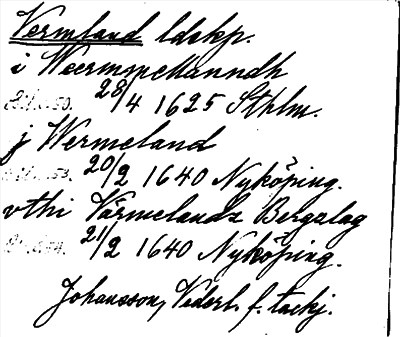 Vermland ldskp.
i Weermmellanndh
28/4 1625 Sthlm.
j Wermeland
20/2 1640 Nyköping.
vthi Värmelandz Bergzlag
21/2 1640 Nyköping.
Johansson, Vederl. f. täckj.